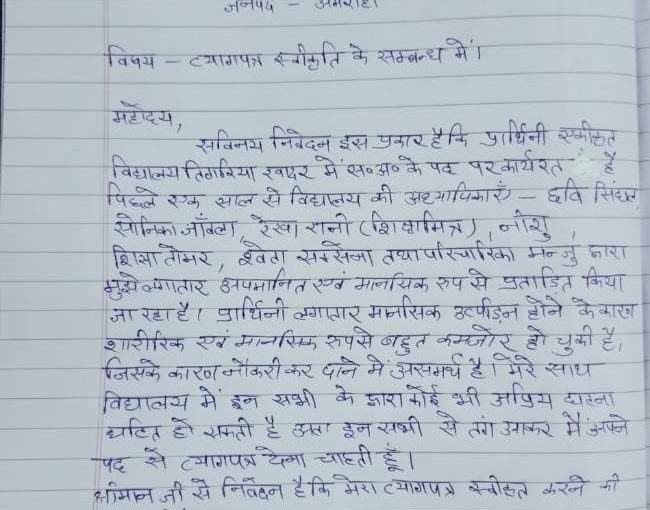 जनपद – अमरोहा
विषय – त्यागपत्र स्वीकृति के सम्बन्ध में।
महोदय,
सविनय निवेदन इस प्रकार है कि प्रार्थिनी एकीकृत
विद्यालय तिगरिया खादर में स०अ० के पद पर कार्यरत है
पिछले एक साल से विद्यालय की अध्यापिकाएँ – छवि सिंघल,
सोनिका जाँवला, रेखा रानी (शिक्षामित्र), नीशु,
शिखा तोमर, श्वेता सक्सेना तथा परिचारिका मन्जु द्वारा
मुझे लगातार अपमानित एवं मानसिक रूप से प्रताडित किया
जा रहा है। प्रार्थिनी लगातार मानसिक उत्पीड़न होने के कारण
शारीरिक एवं मानसिक रूप से बहुत कमजोर हो चुकी है,
जिसके कारण नौकरी कर पाने में असमर्थ है। मेरे साथ
विद्यालय में इन सभी के द्वारा कोई भी अप्रिय घटना
घटित हो सकती है अतः इन सभी से तंग आकर मैं अपने
पद से त्यागपत्र देना चाहती हूँ।
श्रीमान जी से निवेदन है कि मेरा त्यागपत्र स्वीकृत करने की